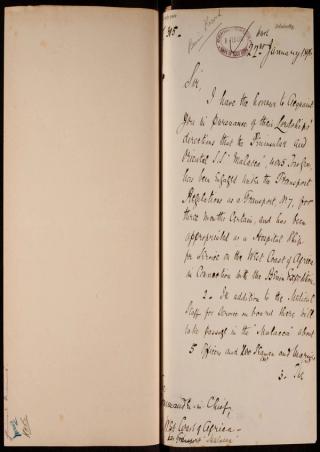 Admiralty,
22nd January
Sir,
I have the honour to acquaint
you in pursuance of their Lordships'
directions that the Peninsular and
Oriental S.S. "Malacca", 4045 Tons
has been engaged under the Transport
Regulations as a Transport, No 7, for
three months certain, and has been
appropriated as a Hospital Ship
for Service on the West Coast of Africa
in connection with the Benin Expedition.
2. In addition to the Medical
Staff for Service on board there will
take passage in the "Malacca" about
5 Officers and 200 Seamen and Marines
3. The
Commander in Chief,
West Coast of Africa